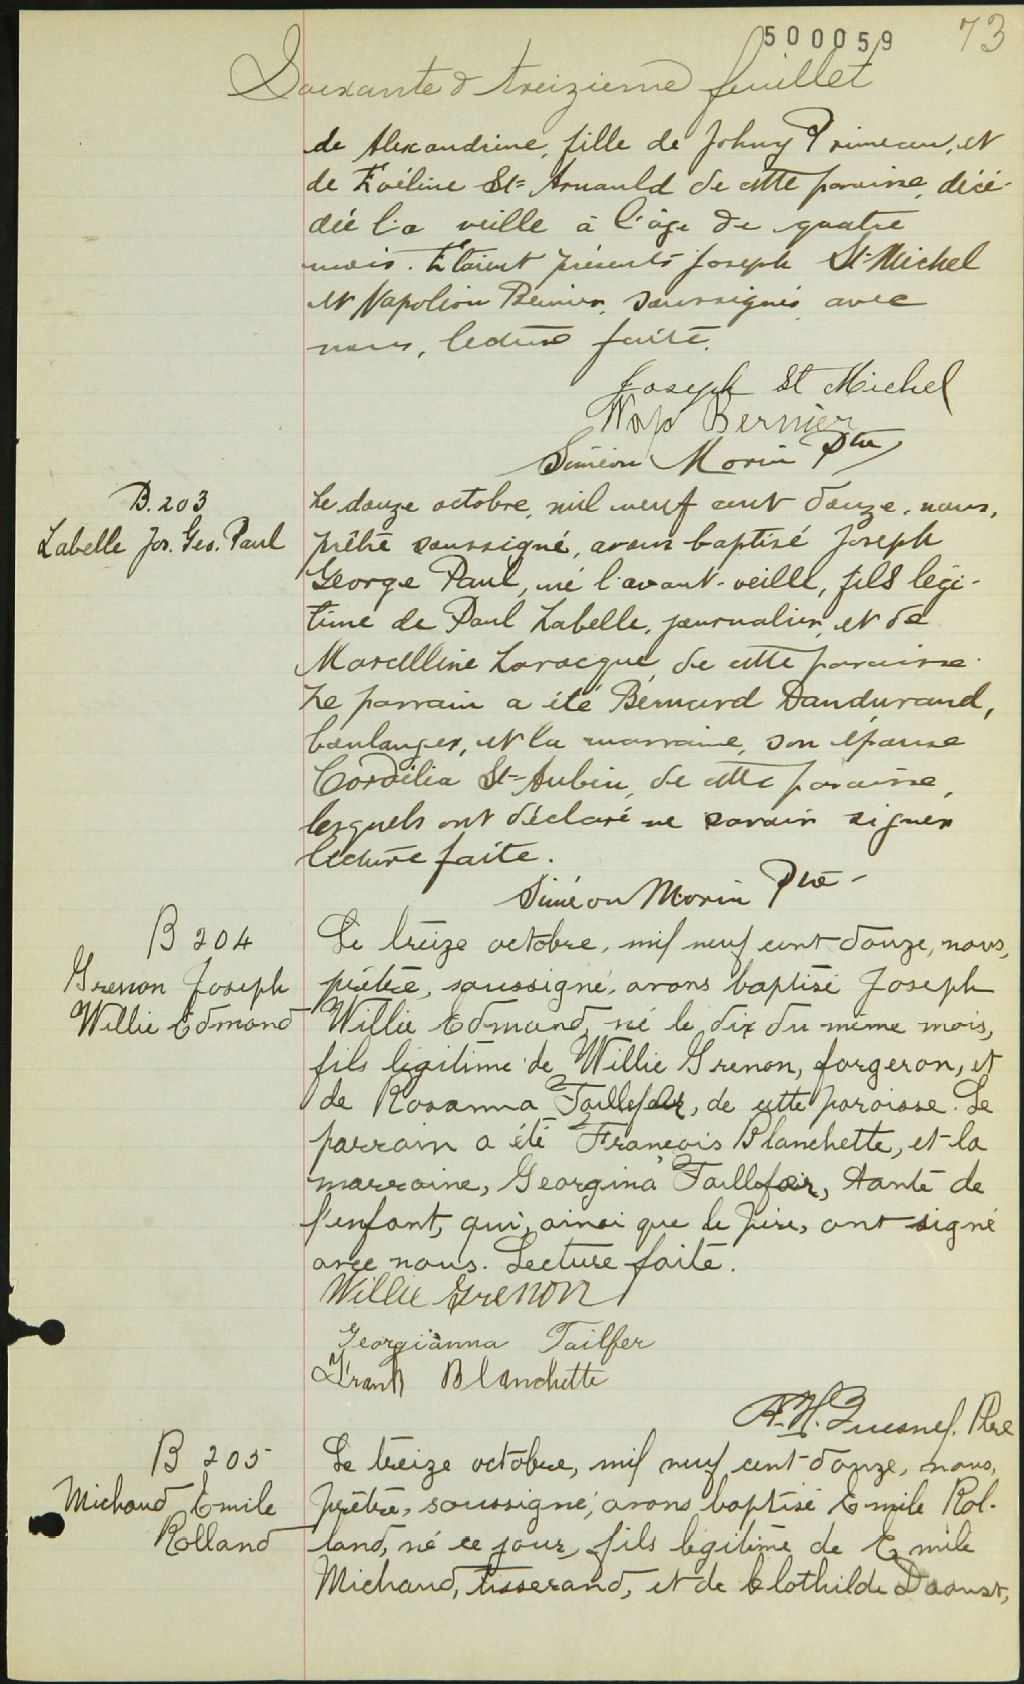 500059 73
Soixante & treizième feuillet
de Alexandrine, fille de Johny Primeau, et
de Évéline St-Arnauld de cette paroisse, décé-
dée la veille à l'âge de quatre
mois. Étaient présents Joseph St-Michel
et Napoléon Bernier, soussignés avec
nous, lecture faite.
Joseph St Michel
Nap Bernier
Siméon Morin Ptre
B. 203
Labelle Jos. Geo. Paul
Le douze octobre, mil neuf cent douze, nous,
prêtre soussigné, avons baptisé Joseph
George Paul, né l'avant-veille, fils légi-
time de Paul Labelle, journalier, et de
Marcelline Laracque, de cette paroisse.
Le parrain a été Bernard Dandurand,
boulanger, et la marraine, son épouse
Cordélia St-Aubin, de cette paroisse,
lesquels ont déclaré ne savoir signer
lecture faite.
Siméon Morin Ptre
B 204
Grenon Joseph
Willie Edmond
Le treize octobre, mil neuf cent douze, nous,
prêtre, soussigné, avons baptisé Joseph
Willie Edmond, né le dix du même mois,
fils légitime de Willie Grenon, forgeron, et
de Rosanna Taillefer, de cette paroisse. Le
parrain a été François Blanchette, et la
marraine, Georgina Taillefer, tante de
l'enfant, qui, ainsi que le père, ont signé
avec nous. Lecture faite.
Willie Grenon
Georgianna Tailfer
Frank Blanchette
A. H. Quesnel. Ptre
B 205
Michaud Emile
Rolland
Le treize octobre, mil neuf cent douze, nous,
prêtre, soussigné, avons baptisé Emile Rol-
land, né ce jour, fils légitime de Emile
Michaud, tisserand, et de Clothilde Daoust,